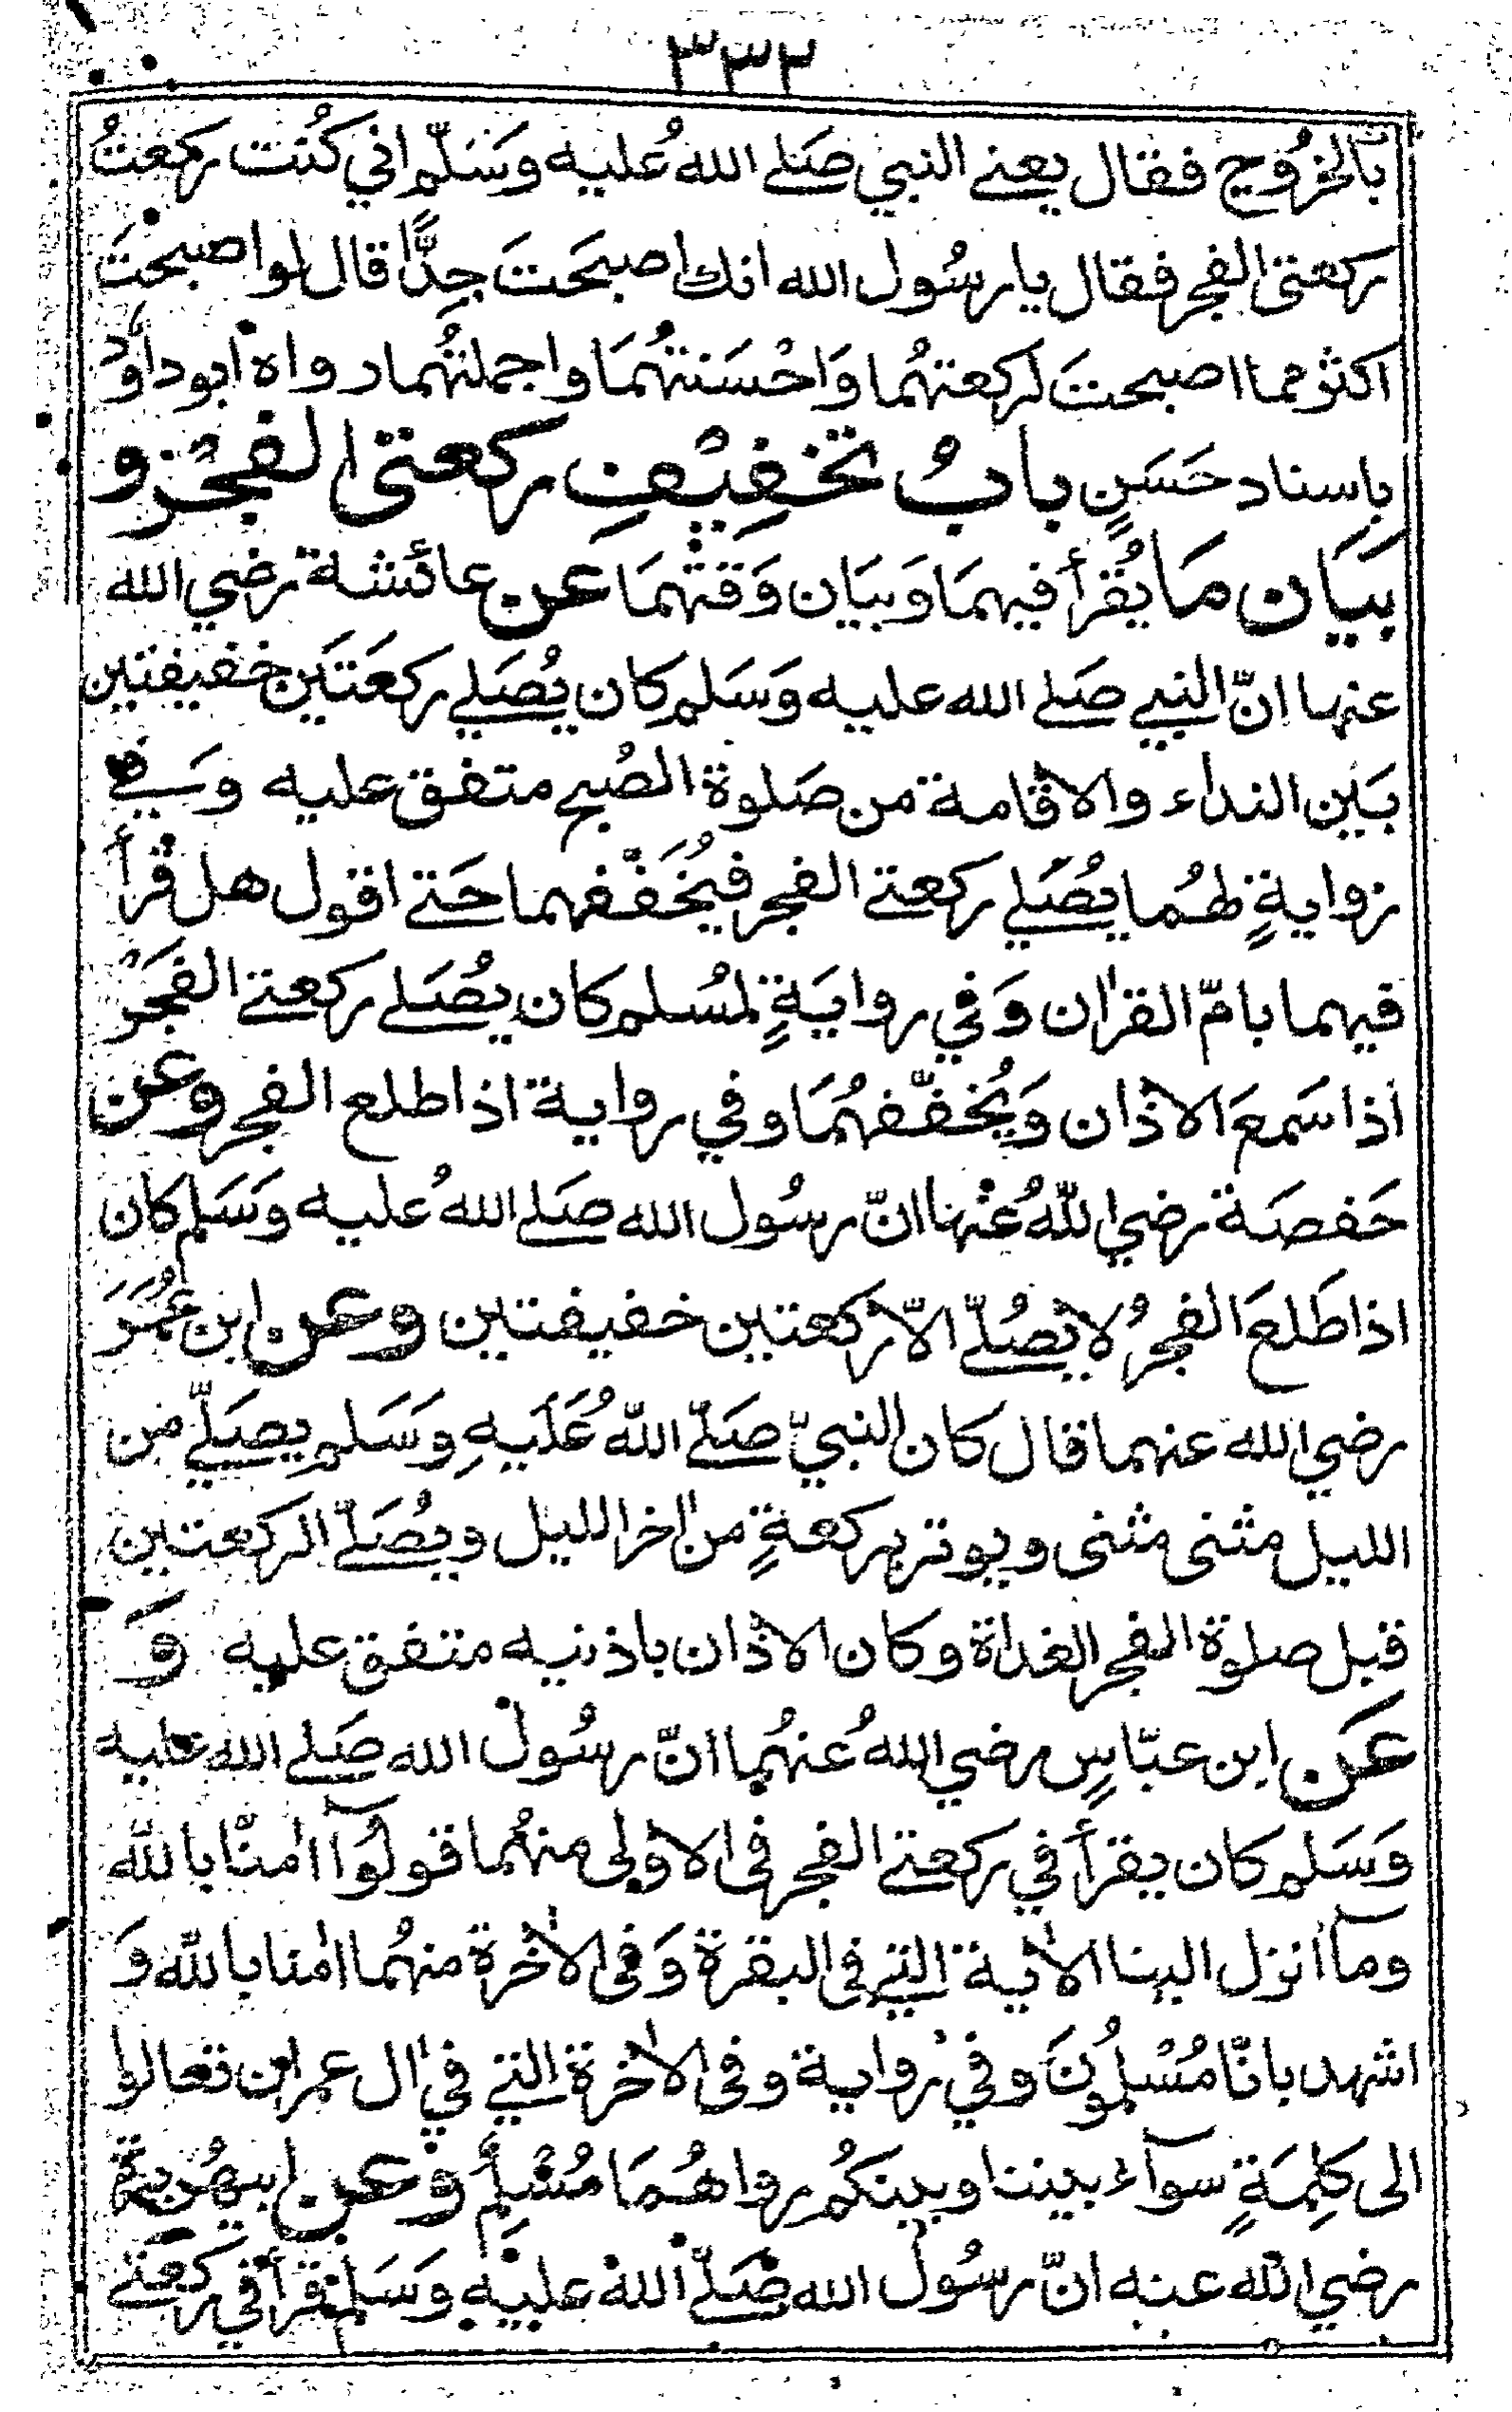 ٣٣٢
بالخرُوج فقال يعنے النبي صَلے اللهُ عليه وَسَلّم اني كُنت ركعتُ
ركعتى الفجر فقال يا رسُول الله انك اصبَحَتَ جِدًّا قال لو اصبحتَ
اكثر مما اصبحتَ لركعتهُما وَاحْسَنتهُمَا واجملتهُما رواه ابوداؤد
بإسناد حَسَنٍ بابُ تخفِيْفِ ركعتى الفجْر و
بيَان مَا يُقرأ فيهمَا وَبيَان وَقتهمَا عن عائشة رضي الله
عنها انّ النبي صَلے الله عليه وَسَلم كان يُصَلے ركعَتَين خفيفتين
بَين النداء والاقامة من صَلوة الصُبح متفق عليه وَفے
روايةٍ لهُما يُصَلے ركعتے الفجر فيُخَفّفهما حَتے اقول هل قرأ
فيهما بامّ القرٰان وَفي روايَةٍ لمُسلم كان يُصَلے ركعتے الفَجَر
اذا سَمعَ الاذان وَيُخفّفهُمَا وفي رواية اذا طلع الفجر وعن
حَفصَة رضي اللهُ عنْها انّ رسُول الله صَلے اللهُ عليه وَسَلم كان
اذا طَلعَ الفجرُ لا يُصُلّے الاّ ركعتين خفيفتين وعن ابن عُمَرَ
رضي الله عنهما قال كان النبيّ صَلّے اللهُ عَلَيهِ وَسَلم يصَلّے من
الليل مثنى مثنى ويوتر بركعةٍ من اٰخر الليل ويُصَلّے الركعتين
قبل صلوة الفجر الغداة وكان الاذان باذنيه متفق عليه وَ
عَن ابن عبّاسٍ رضي اللهُ عنهُما انّ رسُول الله صَلے الله عليه
وَسَلم كان يقرأ في ركعتے الفجر فى الاولى منهُما قولُوآ اٰمنّا بالله
ومآ انزل الينا الاٰية التے فى البقرة وَفى الاٰخرة منهُما اٰمنا بالله وَ
اشهد بانّا مُسْلمُونَ وفي رواية وفى الاٰخرة التے في اٰل عمرٰن تعالوا
الى كلِمَةٍ سوآء بيننا وبينكُم رواهُمَا مُسْلِم وعن ابيهُريرة
رضي الله عنه انّ رسُول الله صَلّے الله عليهِ وَسَلم قرأ في ركعتے